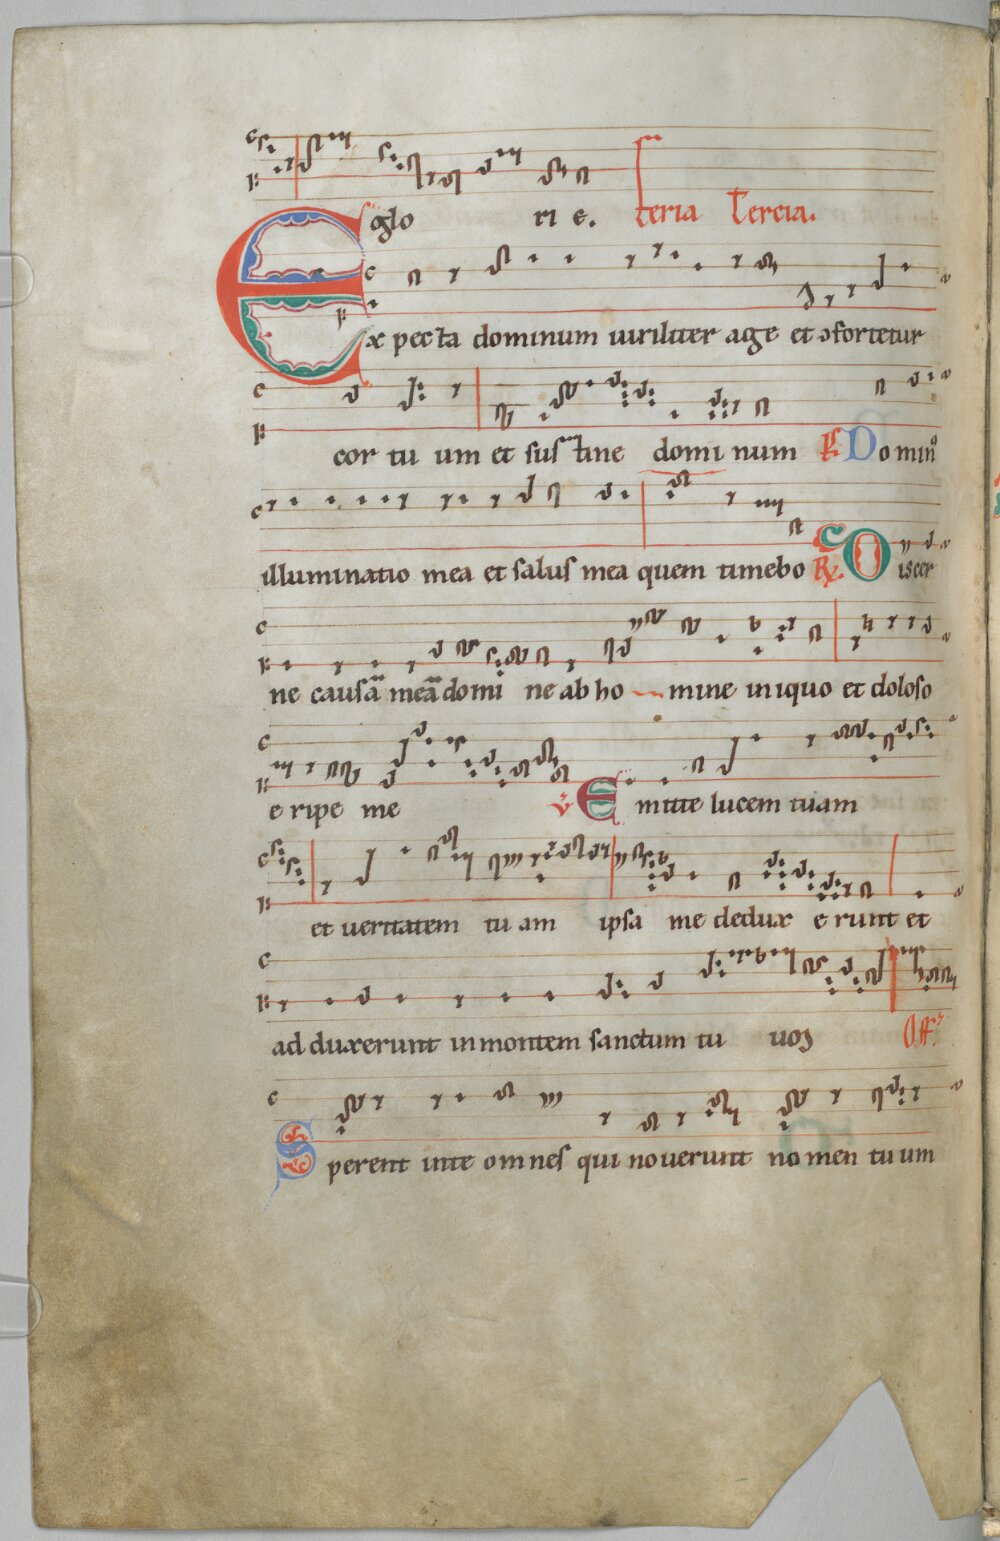 glo ri e. feria Tercia.
Expecta dominum uiriliter age et ɔfortetur
cor tu um et sustine dominum Ps Domin⁹
illuminatio mea et salus mea quem timebo Gr Discer
ne causā meā domi ne ab ho mine iniquo et doloso
e ripe me V Emitte lucem tuam
et ueritatem tu am ipsa me dedux e runt et
ad duxerunt in montem sanctum tu uoʒ Off
Sperent inte omnes qui nouerunt nomen tuum